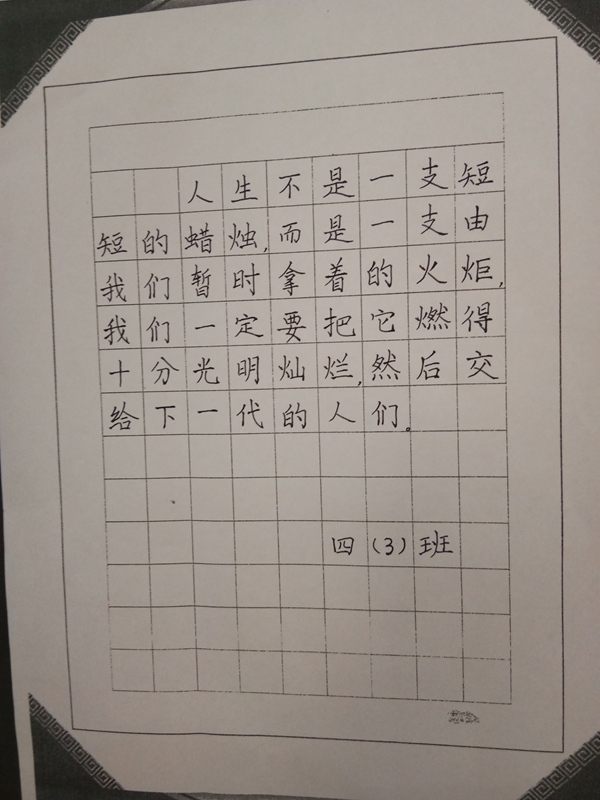 人生不是一支短
短的蜡烛,而是一支由
我们暂时拿着的火炬,
我们一定要把它燃得
十分光明灿烂,然后交
给下一代的人们。
四(3)班